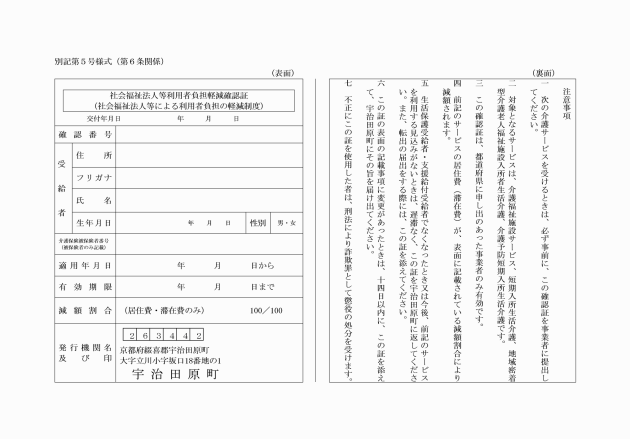 別記第５号様式（第６条関係）
（表面）
社会福祉法人等利用者負担軽減確認証
（社会福祉法人等による利用者負担の軽減制度）
交付年月日　年　月　日
確認番号
受給者
住所
フリガナ
氏名
生年月日　年　月　日　性別　男・女
介護保険被保険者番号
（被保険者のみ記載）
適用年月日　年　月　日から
有効期限　年　月　日まで
減額割合　（居住費・滞在費のみ）　100／100
発行機関名
及び印
２６３４４２
京都府綴喜郡宇治田原町
大字立川小字坂口18番地の1
宇治田原町
（裏面）
注意事項
一　次の介護サービスを受けるときは、必ず事前に、この確認証を事業者に提出し
てください。
二　対象となるサービスは、介護福祉施設サービス、短期入所生活介護、地域密着
型介護老人福祉施設入所者生活介護、介護予防短期入所生活介護です。
三　この確認証は、都道府県に申し出のあった事業者のみ有効です。
四　前記のサービスの居住費（滞在費）が、表面に記載されている減額割合により
減額されます。
五　生活保護受給者・支援給付受給者でなくなったとき又は今後、前記のサービス
を利用する見込みがないときは、遅滞なく、この証を宇治田原町に返してくださ
い。また、転出の届出をする際には、この証を添えてください。
六　この証の表面の記載事項に変更があったときは、十四日以内に、この証を添え
て、宇治田原町にその旨を届け出てください。
七　不正にこの証を使用した者は、刑法により詐欺罪として懲役の処分を受けます。